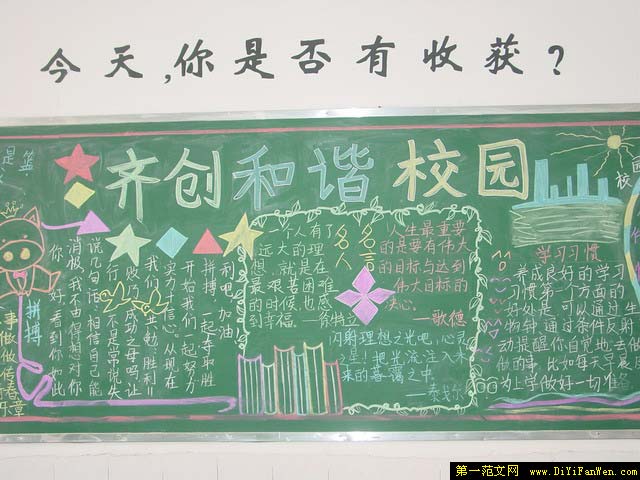 今天,你是否有收获?
齐创和谐校园
名人名言
一个人有了
远大的理
想,就是在
最艰苦困难
的时候,也感
到幸福。—徐特立
人生最重要
的是要有伟大
的目标与达到
伟大目标的
决心。
—歌德
闪射理想之光吧,心灵
之星!把光流注入未
来的暮霭之中
—泰戈尔
学习习惯
养成良好的学习
习惯第一个方面的
好处是,可以通过生
物钟,通过条件反射
动提醒你自觉地去做
做的事,比如每天早晨
为上学做好一切准
拼搏
你好,看到你如此
消极,我不由得想对你
说几句话:相信自己能
行
败乃成功之母吗,让
我们共勉:胜利=
实力+信心。从现在
开始,我们一起努力
拼搏,一起夺取胜
利吧!加油!
第一范文网 www.DiYiFanWen.com